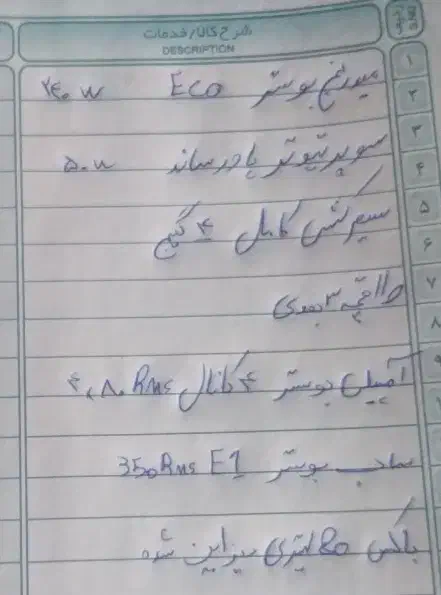 شرح کالا/خدمات
DESCRIPTION
۱
میدرنج بوستر ECO ۲۴۰ W
۲
۳
سوپر تیوتر پاور ساند ۵۰ W
۴
سیم کشی کامل ۴ گیج
۵
۶
طاقچه ۳ بعدی
۷
۸
آمپلی بوستر ۴ کانال ۴،۸۰ RMS
۹
ساب بوستر E1 350 RMS
باکس ۵۰ لیتری دیزاین شده